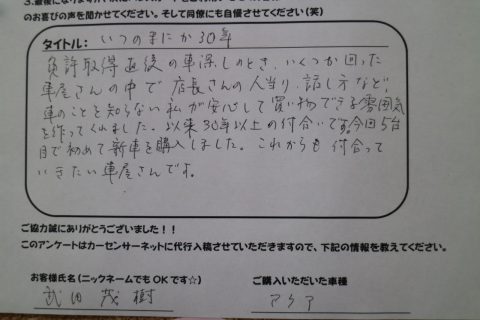 のお喜びの声を聞かせてください。そして同僚にも自慢させてください(笑)
タイトル: いつのまにか30年
免許取得直後の車探しのとき、いくつか回った
車屋さんの中で店長さんの人当り、話し方など、
車のことを知らない私が安心して買い物できる雰囲気
を作ってくれました。以来30年以上の付合いです。今回5台
目で初めて新車を購入しました。これからも付合って
いきたい車屋さんです。
ご協力誠にありがとうございました!!
このアンケートはカーセンサーネットに代行入稿させていただきますので、下記の情報を教えてください。
お客様氏名(ニックネームでもOKです☆)
ご購入いただいた車種
武田茂樹
アクア